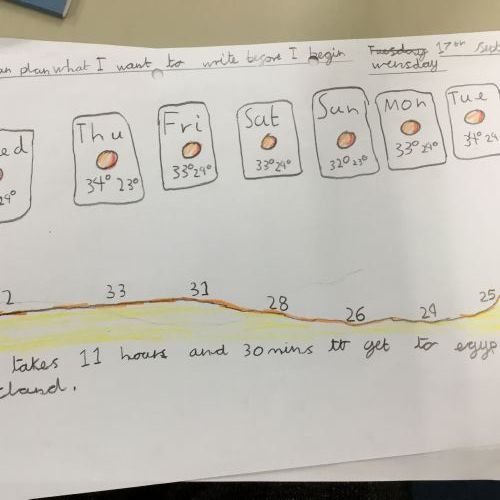 an plan what I want to write before I begin Tuesday 17th Sept
wensday
ed Thu Fri Sat Sun Mon Tue
34° 23° 33° 29° 33° 29° 32° 23° 33° 29° 34° 29
33 31 28 26 24 25
takes 11 hours and 30 mins to get to egyp
cland.